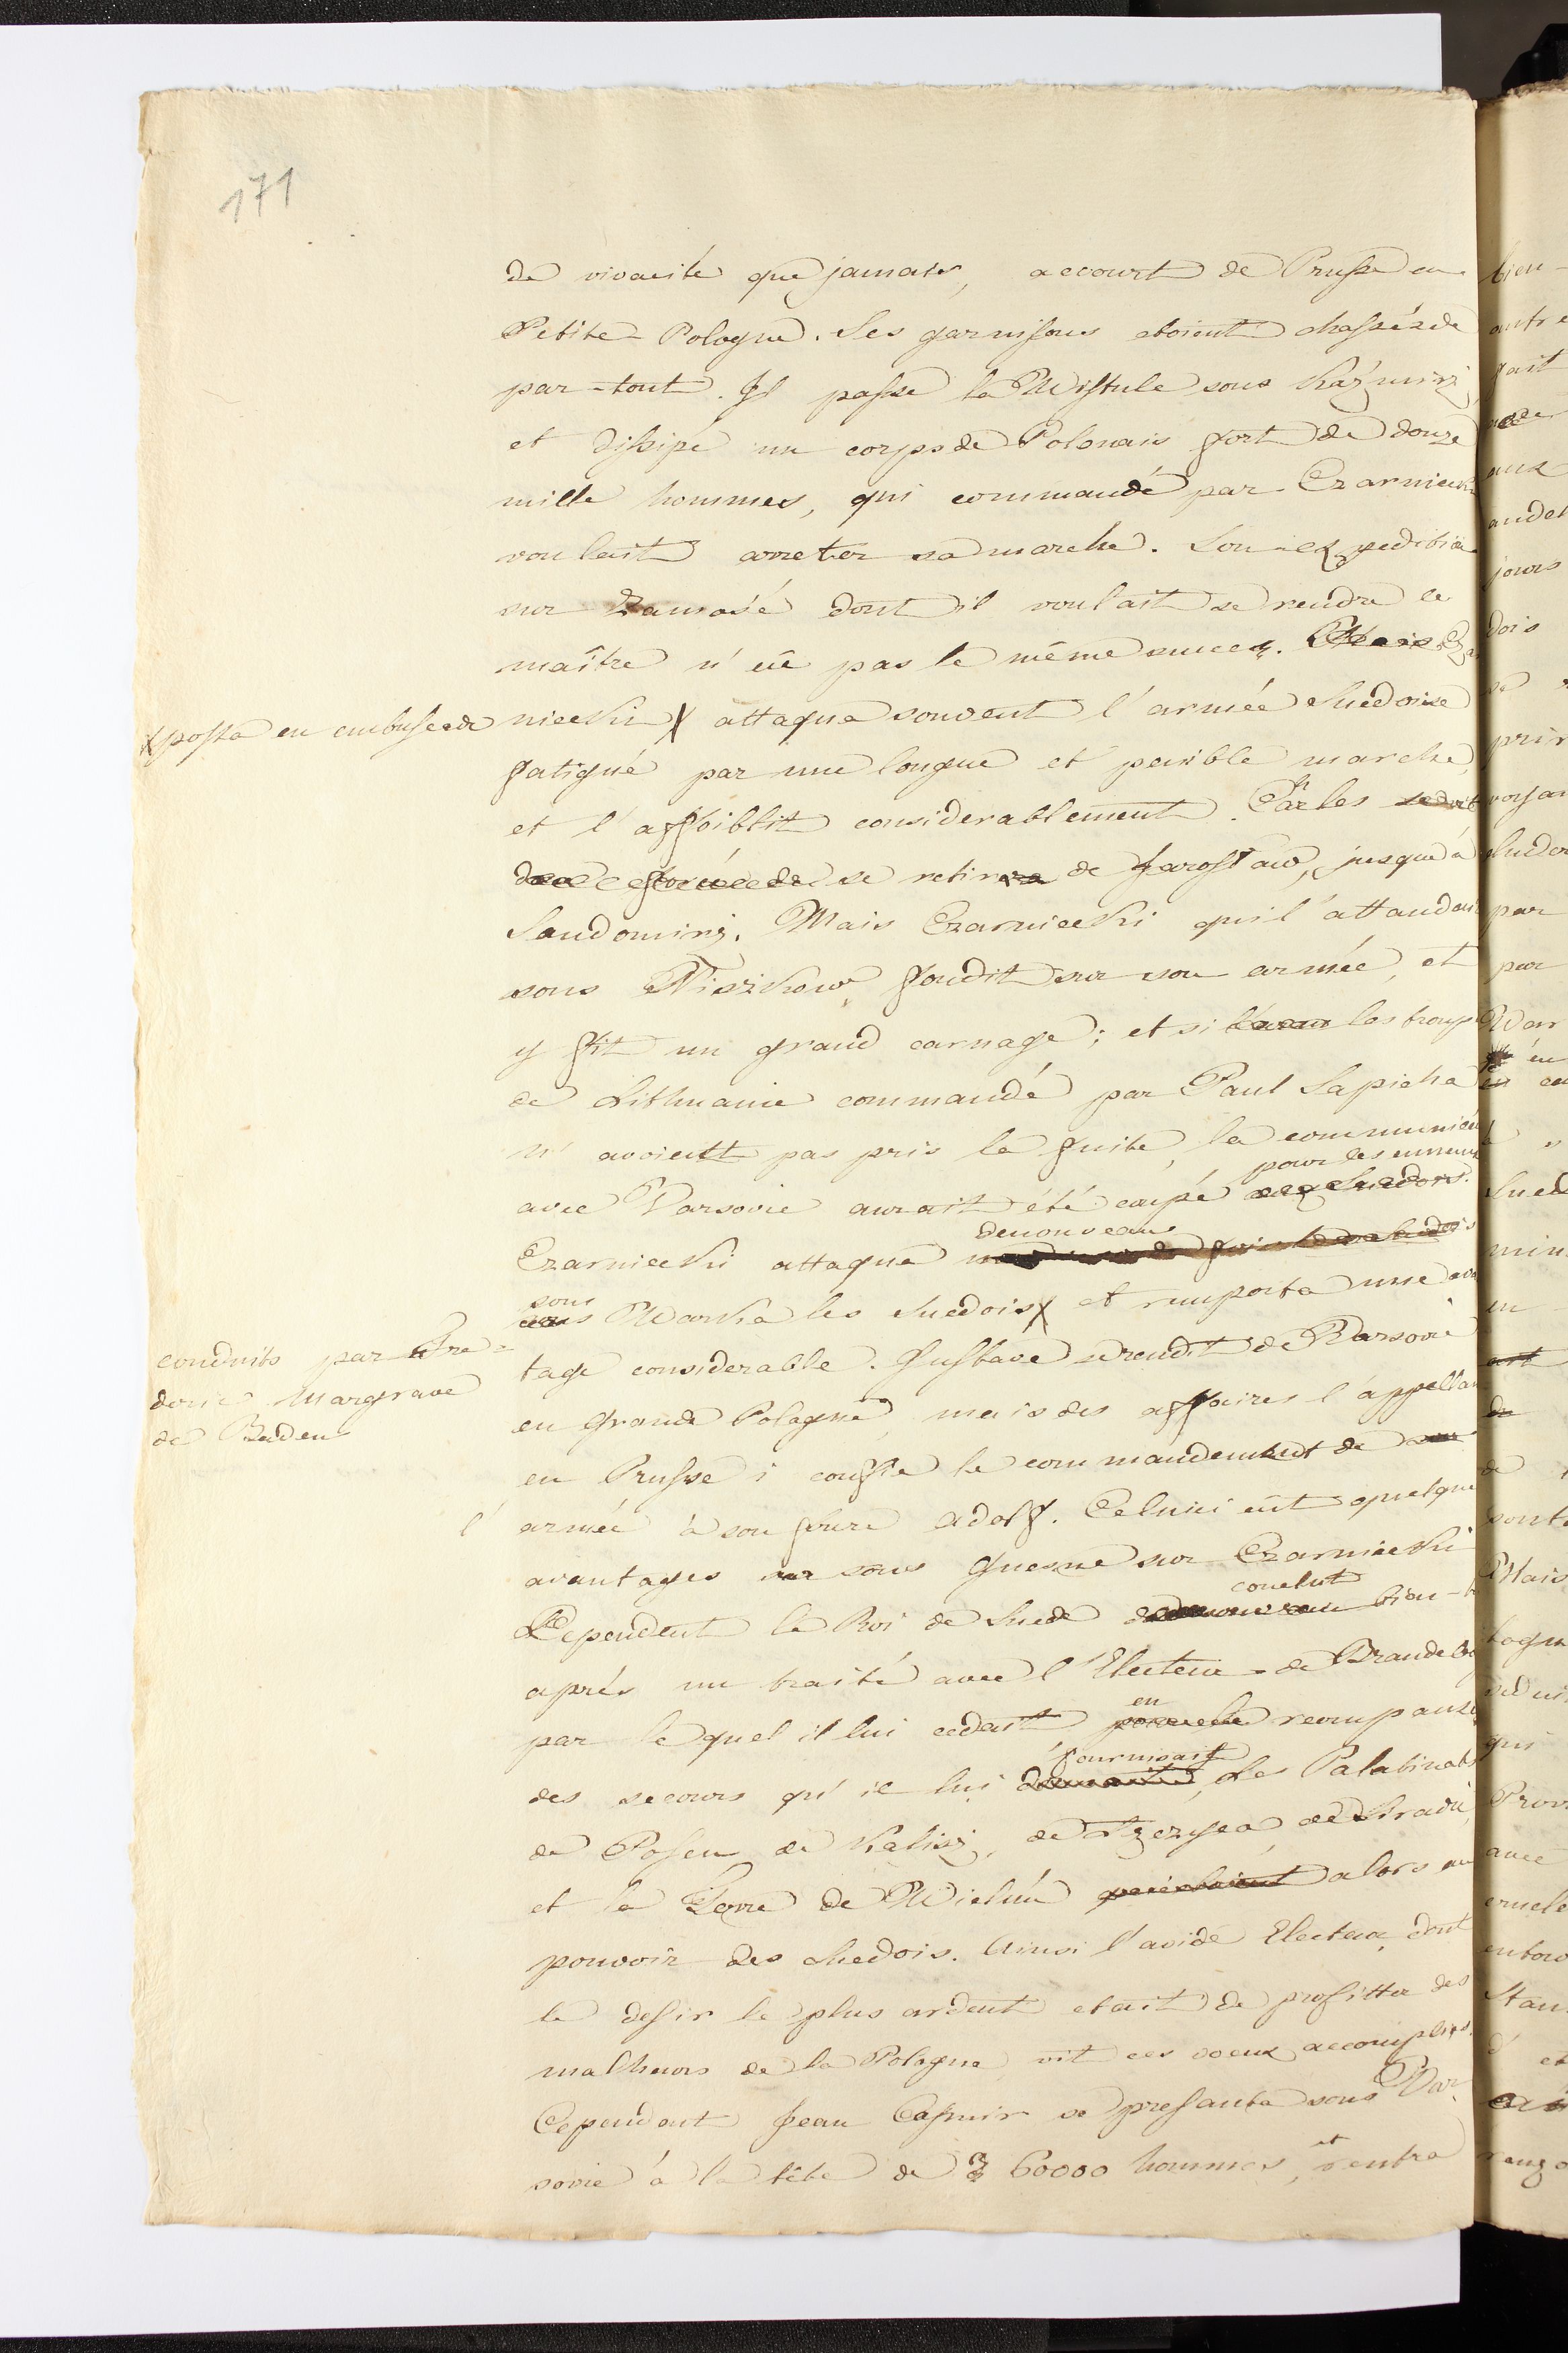 171
de vivacité que jamais, accourt de Prusse en
Petite-Pologne. Ses garnisons etoient chassés de
par-tout. Il passe la Wistule sous Kazmirz,
et dissipe un corps de Polonais fort de douze
mille hommes, qui commandé par Czarniecki
voulait arreter sa marche. Son expedition
sur Zamosé dont il voulait se rendre le
maître n'eu pas le même succes. Mais Czar
x posta en embuscade
niecki x attaque souvent l'armée Suedoise
fatigué par une longue et penible marche,
et l'affoiblit considerablement. Charles
forcé de se retira de Jaroslaw, jusque à
Sandomirz. Mais Czarniecki qui l'attandait
sous Niszkow, fondit sur son armée, et
y fit un grand carnage; et si les troup
de Lithuanie commandé par Paul Sapieha
n'avoient pas pris la fuite, la communicati
pour les ennemis
avec Varsovie aurait été coupé aux Suedois.
denouveau
Czarniecki attaque
sous
Warka les Suedois x et remporta une avan
conduits par Fre-
deric Margrave
de Baden
tage considerable. Gustave se rendit de Varsovie
en Grande Pologne, mais des affaires l'appellan
en Prusse i confia le commandement de
l'armée à son frere Adolf. Celuici eut quelque
avantages sous Gnesne sur Czarniecki
conclut
Cependent le Roi de Suede bien-t
aprés un traité avec l'Electeur de Brandebg
en
par le quel il lui cedait recompanse
fournisait
des secours qu'il lui, Les Palatinats
de Posen de Kalisz, de Łęczyca de Siradie,
et la Terre de Wielun alors au
pouvoir des Suedois. Ainsi l'avide Electeur, dont
le desir le plus ardent etait de profitter des
malheurs de la Pologne vit ces voeux accomplies.
Cependent Jean Casimir se presanta sous Var-
sovie à la tête de 60000 hommes, et rentra